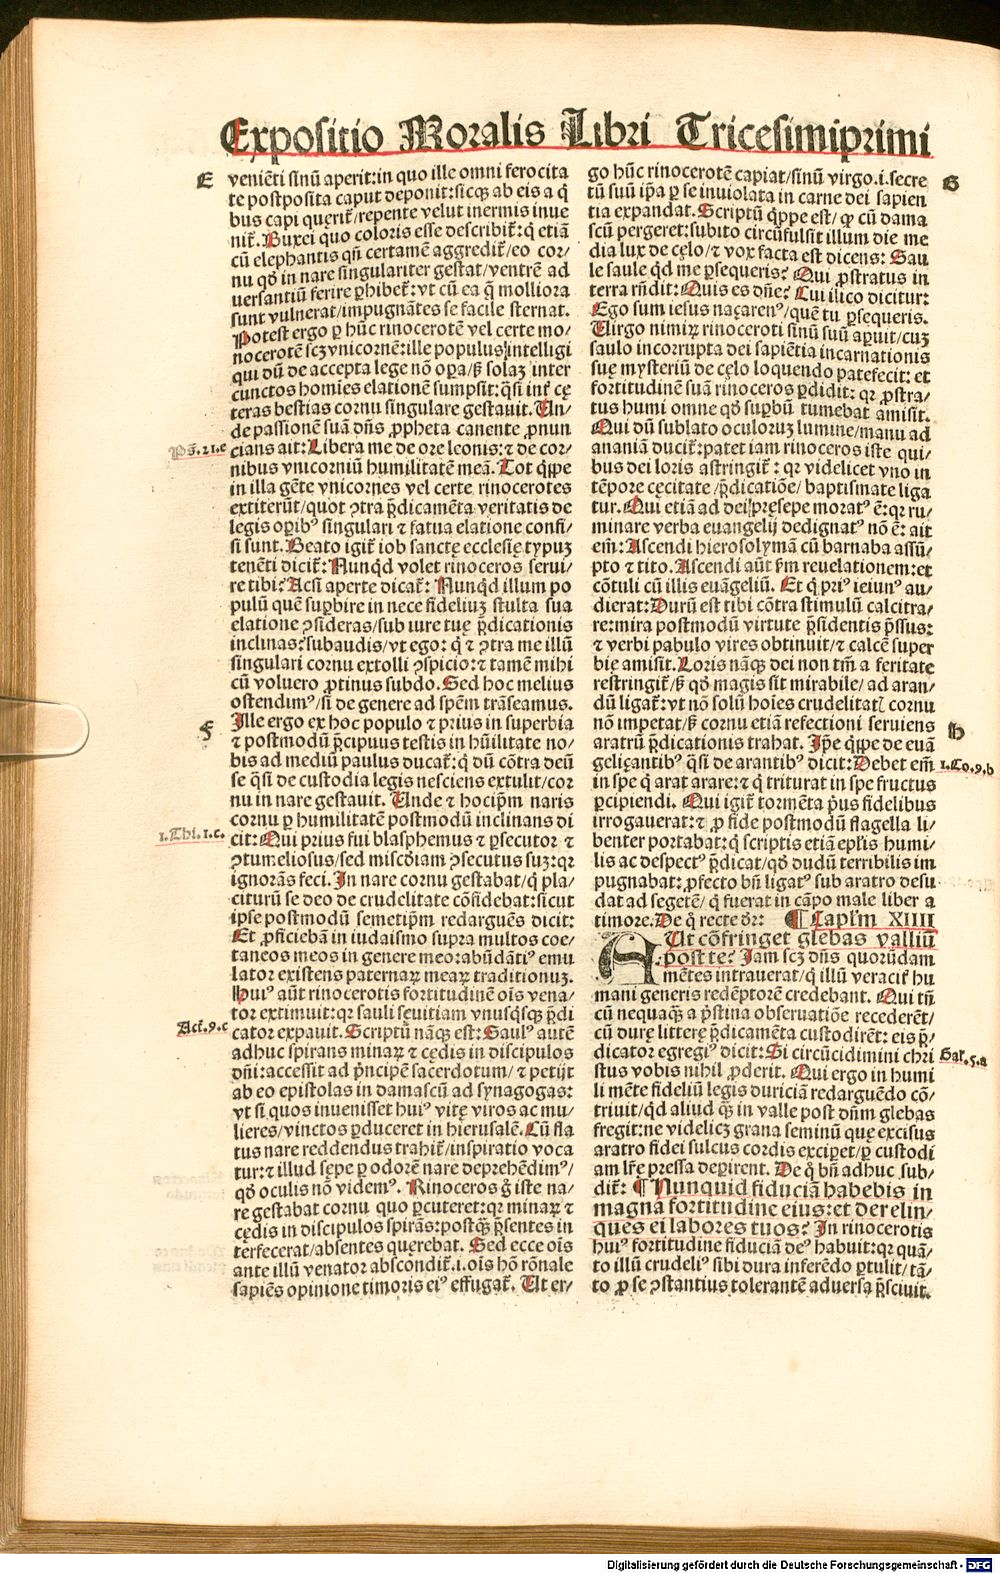 Expositio Moralis Libri Tricesimiprimi
E
veniēti sinū aperit: in quo ille omni ferocita
te postposita caput deponit: sicqꝫ ab eis a q̄
bus capi querit̄/ repente velut inermis inue
nit̄. Buxei quo coloris esse describit̄: q̇ etiā
cū elephantis qn̄ certamē aggredit̄/ eo cor/
nu qd̓ in nare singulariter gestat/ ventrē ad
uersantiū ferire ꝑhibet̄: vt cū ea q̄ molliora
sunt vulnerat/ impugnātes se facile sternat.
Potest ergo ꝑ hūc rinocerotē vel certe mo/
nocerotē scꝫ vnicornē: ille populus intelligi
qui dū de accepta lege nō oꝑa/ sꝫ solaꝫ inter
cunctos homies elationē sumpsit: q̄si int̄ cę
teras bestias cornu singulare gestauit. Un/
de passionē suā dn̄s ꝓpheta canente ꝓnun
Ps̄.21.c
cians ait: Libera me de ore leonis: ⁊ de cor/
nibus vnicorniū humilitatē meā. Tot q̄ppe
in illa gēte vnicornes vel certe rinocerotes
extiterūt/ quot ꝯtra p̄dicamēta veritatis de
legis oꝑibꝰ singulari ⁊ fatua elatione confi/
si sunt. Beato igit̄ iob sanctę ecclesię typuꝫ
tenēti dicit̄: Nunqd̓ volet rinoceros serui/
re tibi? Acsi aperte dicat̄: Nunqd̓ illum po
pulū quē suꝑbire in nece fideliuꝫ stulta sua
elatione ꝯsideras/ sub iure tuę p̄dicationis
inclinas? subaudis/ vt ego: q̇ ⁊ ꝯtra me illū
singulari cornu extolli ꝯspicio: ⁊ tamē mihi
cū voluero ꝓtinus subdo. Sed hoc melius
ostendimꝰ/ si de genere ad spēm trāseamus.
F
Ille ergo ex hoc populo ⁊ prius in superbia
⁊ postmodū p̄cipuus testis in hūilitate no/
bis ad mediū paulus ducat̄: q̇ dū cōtra deū
se q̄si de custodia legis nesciens extulit/ cor
nu in nare gestauit. Unde ⁊ hocip̄m naris
cornu ꝑ humilitatē postmodū inclinans di
1.Thi.1.c.
cit: Qui prius fui blasphemus ⁊ ꝑsecutor ⁊
ꝯtumeliosus/ sed miscd̓iam ꝯsecutus suꝫ: qꝛ
ignorās feci. In nare cornu gestabat/ q̇ pla/
citurū se deo de crudelitate cōfidebat: sicut
ipse postmodū semetip̄m redarguēs dicit:
Et ꝓficiebā in iudaismo supra multos coe/
taneos meos in genere meo: abūdātiꝰ emu
lator existens paternaꝝ meaꝝ traditionuꝫ.
Huiꝰ aūt rinocerotis fortitudinē oīs vena/
tor extimuit: qꝛ sauli sęuitiam vnusq̇sqꝫ p̄di
Act̄.9.c
cator expauit. Scriptū nāqꝫ est: Saulꝰ autē
adhuc spirans minaꝝ ⁊ cędis in discipulos
dn̄i: accessit ad p̄ncipē sacerdotum/ ⁊ petijt
ab eo epistolas in damascū ad synagogas:
vt si quos inuenisset huiꝰ vitę viros ac mu/
lieres/ vinctos ꝑduceret in hierusalē. Cū fla
tus nare reddendus trahit̄/ inspiratio voca
tur: ⁊ illud sępe ꝑ odorē nare deprehēdimꝰ/
qd̓ oculis nō videmꝰ. Rinoceros g̊ iste na/
re gestabat cornu quo ꝑcuteret: qꝛ minaꝝ ⁊
cędis in discipulos spirās: postq̄ꝫ p̄sentes in
terfecerat/ absentes querebat. Sed ecce oīs
ante illū venator abscondit̄.i. oīs hō rōnale
sapiēs opinione timoris eiꝰ effugat̄. Ut er/
go hūc rinocerotē capiat/ sinū virgo.i. secre
G
tū suū ip̄a ꝑ se inuiolata in carne dei sapien
tia expandat. Scriptū q̄ppe est/ ꝙ cū dama
scū pergeret: subito circūfulsit illum die me
dia lux de cęlo/ ⁊ vox facta est dicens: Sau
le saule qd̓ me ꝑsequeris? Qui ꝓstratus in
terra rn̄dit: Quis es dn̄e? Cui ilico dicitur:
Ego sum iesus naçarenꝰ/ quē tu ꝑsequeris.
Uirgo nimiꝝ rinoceroti sinū suū aꝑuit/ cuꝫ
saulo incorrupta dei sapiētia incarnationis
suę mysteriū de cęlo loquendo patefecit: et
fortitudinē suā rinoceros ꝑdidit: qꝛ ꝓstra/
tus humi omne qd̓ suꝑbū tumebat amisit.
Qui dū sublato oculoruꝫ lumine/ manu ad
ananiā ducit̄: patet iam rinoceros iste qui/
bus dei loris astringit̄: qꝛ videlicet vno in
tēpore cęcitate/ p̄dicatiōe/ baptismate liga
tur. Qui etiā ad dei pręsepe moratꝰ ē: qꝛ ru/
minare verba euangelij dedignatꝰ nō ē: ait
em̄: Ascendi hierosolymā cū barnaba assū/
pto ⁊ tito. Ascendi aūt s̄m reuelationem: et
cōtuli cū illis euāgeliū. Et q̇ priꝰ ieiunꝰ au/
dierat: Durū est tibi cōtra stimulū calcitra/
re: mira postmodū virtute p̄sidentis p̄ssus:
⁊ verbi pabulo vires obtinuit/ ⁊ calcē super
bię amisit. Loris nāqꝫ dei non tm̄ a feritate
restringit̄/ sꝫ qd̓ magis sit mirabile/ ad aran/
dū ligat̄: vt nō solū hoīes crudelitatꝭ cornu
nō impetat/ sꝫ cornu etiā refectioni seruiens
H
aratrū p̄dicationis trahat. Ip̄e q̄ppe de euā
geliçantibꝰ q̄si de arantibꝰ dicit: Debet em̄
1.Co.9.b
in spe q̇ arat arare: ⁊ q̇ triturat in spe fructus
ꝑcipiendi. Qui igit̄ tormēta p̄us fidelibus
irrogauerat: ⁊ ꝓ fide postmodū flagella li/
benter portabat: q̇ scriptis etiā epl̓is humi/
lis ac despectꝰ p̄dicat/ qd̓ dudū terribilis im
pugnabat: ꝓfecto bn̄ ligatꝰ sub aratro desu
dat ad segetē/ q̇ fuerat in cāpo male liber a
timore. De q̇ recte d̓r: ¶ Caplm̄ XIIII
Aut cōfringet glebas valliū
post te? Iam scꝫ dn̄s quorūdam
mētes intrauerat/ q̇ illū veracit̄ hu
mani generis redēptorē credebant. Qui tn̄
cū nequaq̄ꝫ a p̄stina obseruatiōe recederēt/
cū durę litterę p̄dicamēta custodirēt: eis p̄/
dicator egregiꝰ dicit: Si circūcidimini chri
Gal̄.5.a
stus vobis nihil ꝓderit. Qui ergo in humi
li mēte fideliū legis duriciā redarguēdo cō/
triuit/ qd̓ aliud q̄ꝫ in valle post dn̄m glebas
fregit: ne videlicꝫ grana seminū quę excisus
aratro fidei sulcus cordis exciꝑet/ ꝑ custodi
am lr̄ę pressa deꝑirent. De q̇ bn̄ adhuc sub/
dit̄: ¶ Nunquid fiduciā habebis in
magna fortitudine eius: et derelin/
ques ei labores tuos? In rinocerotis
huiꝰ fortitudine fiduciā deꝰ habuit: qꝛ quā/
to illū crudeliꝰ sibi dura inferēdo ꝑtulit/ tā/
to ꝓ se ꝯstantius tolerantē aduersa p̄sciuit.
Digitalisierung gefördert durch die Deutsche Forschungsgemeinschaft - DFG